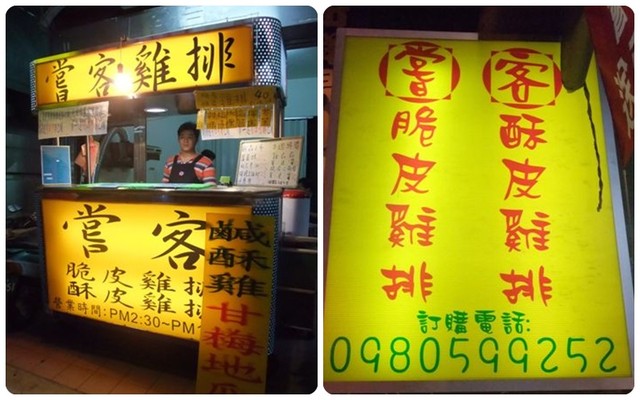 嘗客雞排
嘗客
脆皮雞排
酥皮雞排
營業時間:PM2:30~PM
鹹酥雞
甘梅地瓜
嘗 客
脆皮雞排
酥皮雞排
訂購電話:
0980599252